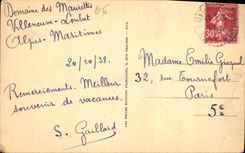 Domaine des Maurettes
Villeneuve-Loubet
Alpes-Maritimes
06
20/10/38.
Remerciements. Meilleur
souvenir de vacances.
S. Gaillard
30c
Madame Emilie
32, rue Tournefort
Paris
5e